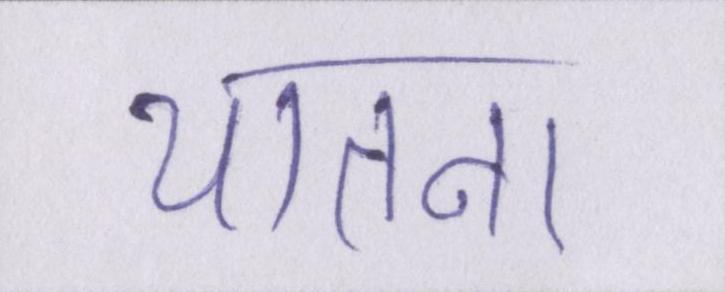 यातना